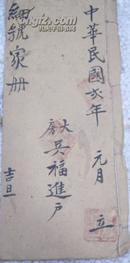 中華民國弍年 元月 立
大房 吳福進戶
細號家册
吉旦